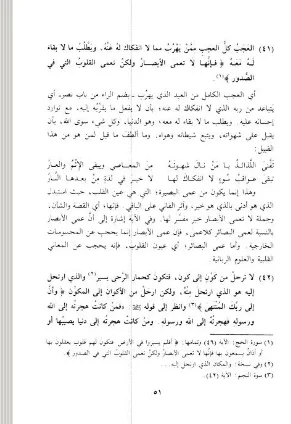 (٤١) العجب كل العجب ممّن يهرُب مما لا انفكاك له عنه، ويطلب ما لا بقاء
له معه ﴿ فإنها لا تعمى الأبصار ولكن تعمى القلوب التي في
الصدور ﴾
أي العجب الكامل من العبد الذي يهرب ـ بضم الراء من باب نصر ـ أي
يتباعد من ربه الذي لا انفكاك له عنه؛ بأن لا يفعل ما يقرّبه إليه، مع توارد
إحسانه عليه. ويطلب ما لا بقاء له معه؛ وهو الدنيا، وكل شيء سوى الله، بأن
يقبل على شهواته، ويتبع شيطانه وهواه. وما ألطف ما قيل لمن هو من هذا
القبيل:
تفنى اللذاذة يا من نال شهوته من المعاصي ويبقى الإثم والعار
تبقى عواقب سوء لا انفكاك لها لا خير في لذة من بعدها النار
وهذا إنما يكون من عمى البصيرة، التي هي عين القلب، حيث استبدل
الذي هو أدنى بالذي هو خير، وآثر الفاني على الباقي. فإنها، أي القصة والشأن.
وجملة لا تعمى الأبصار خبر مفسر لها. وفي الآية إشارة إلى أن عمى الأبصار
بالنسبة لعمى البصائر كلا عمى، فإن عمى الأبصار إنما يحجب عن المحسوسات
الخارجية. وأما عمى البصائر؛ أي عيون القلوب، فإنه يحجب عن المعاني
القلبية والعلوم الربانية
(٤٢) لا ترحل من كون إلى كون، فتكون كحمار الرحى يسير(٢) والذي ارتحل
إليه هو الذي ارتحل منه، ولكن ارحل من الأكوان إلى المكوّن ﴿ وأن
إلى ربك المنتهى ﴾(٣) وانظر إلى قوله ﷺ: «فمن كانت هجرته إلى الله
ورسوله فهجرته إلى الله ورسوله. ومن كانت هجرته إلى دنيا يصيبها أو
(١) سورة الحج: الآية (٤٦) وتمامها: ﴿ أفلم يسيروا في الأرض فتكون لهم قلوب يعقلون بها
أو آذان يسمعون بها فإنها لا تعمى الأبصار ولكن تعمى القلوب التي في الصدور ﴾.
(٢) وفي نسخة: والمكان الذي ارتحل إليه...
(٣) سورة النجم: الآية (٤٢).
٥١